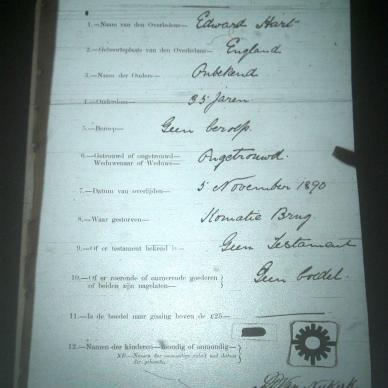 1.—Naam van den Overledene— Edward Hart
2.—Geboorteplaats van den Overledene— England
3.—Naam der Ouders— Onbekend
4.—Ouderdom— 35 jaren.
5.—Beroep— Geen beroep.
6.—Getrouwd of ongetrouwd—
Weduwenaar of Weduwe— Ongetrouwd.
7.—Datum van overlijden— 5 November 1890
8.—Waar gestorven— Komatie Brug.
9.—Of er testament bekend is— Geen Testament
10.—Of er roerende of onroerende goederen
of beiden zijn nagelaten— Geen boedel.
11.—Is de boedel naar gissing boven de £25—
12.—Namen der kinderen—mondig of onmondig—
NB.—Namen der onmondige voluit met datum
der geboorte.